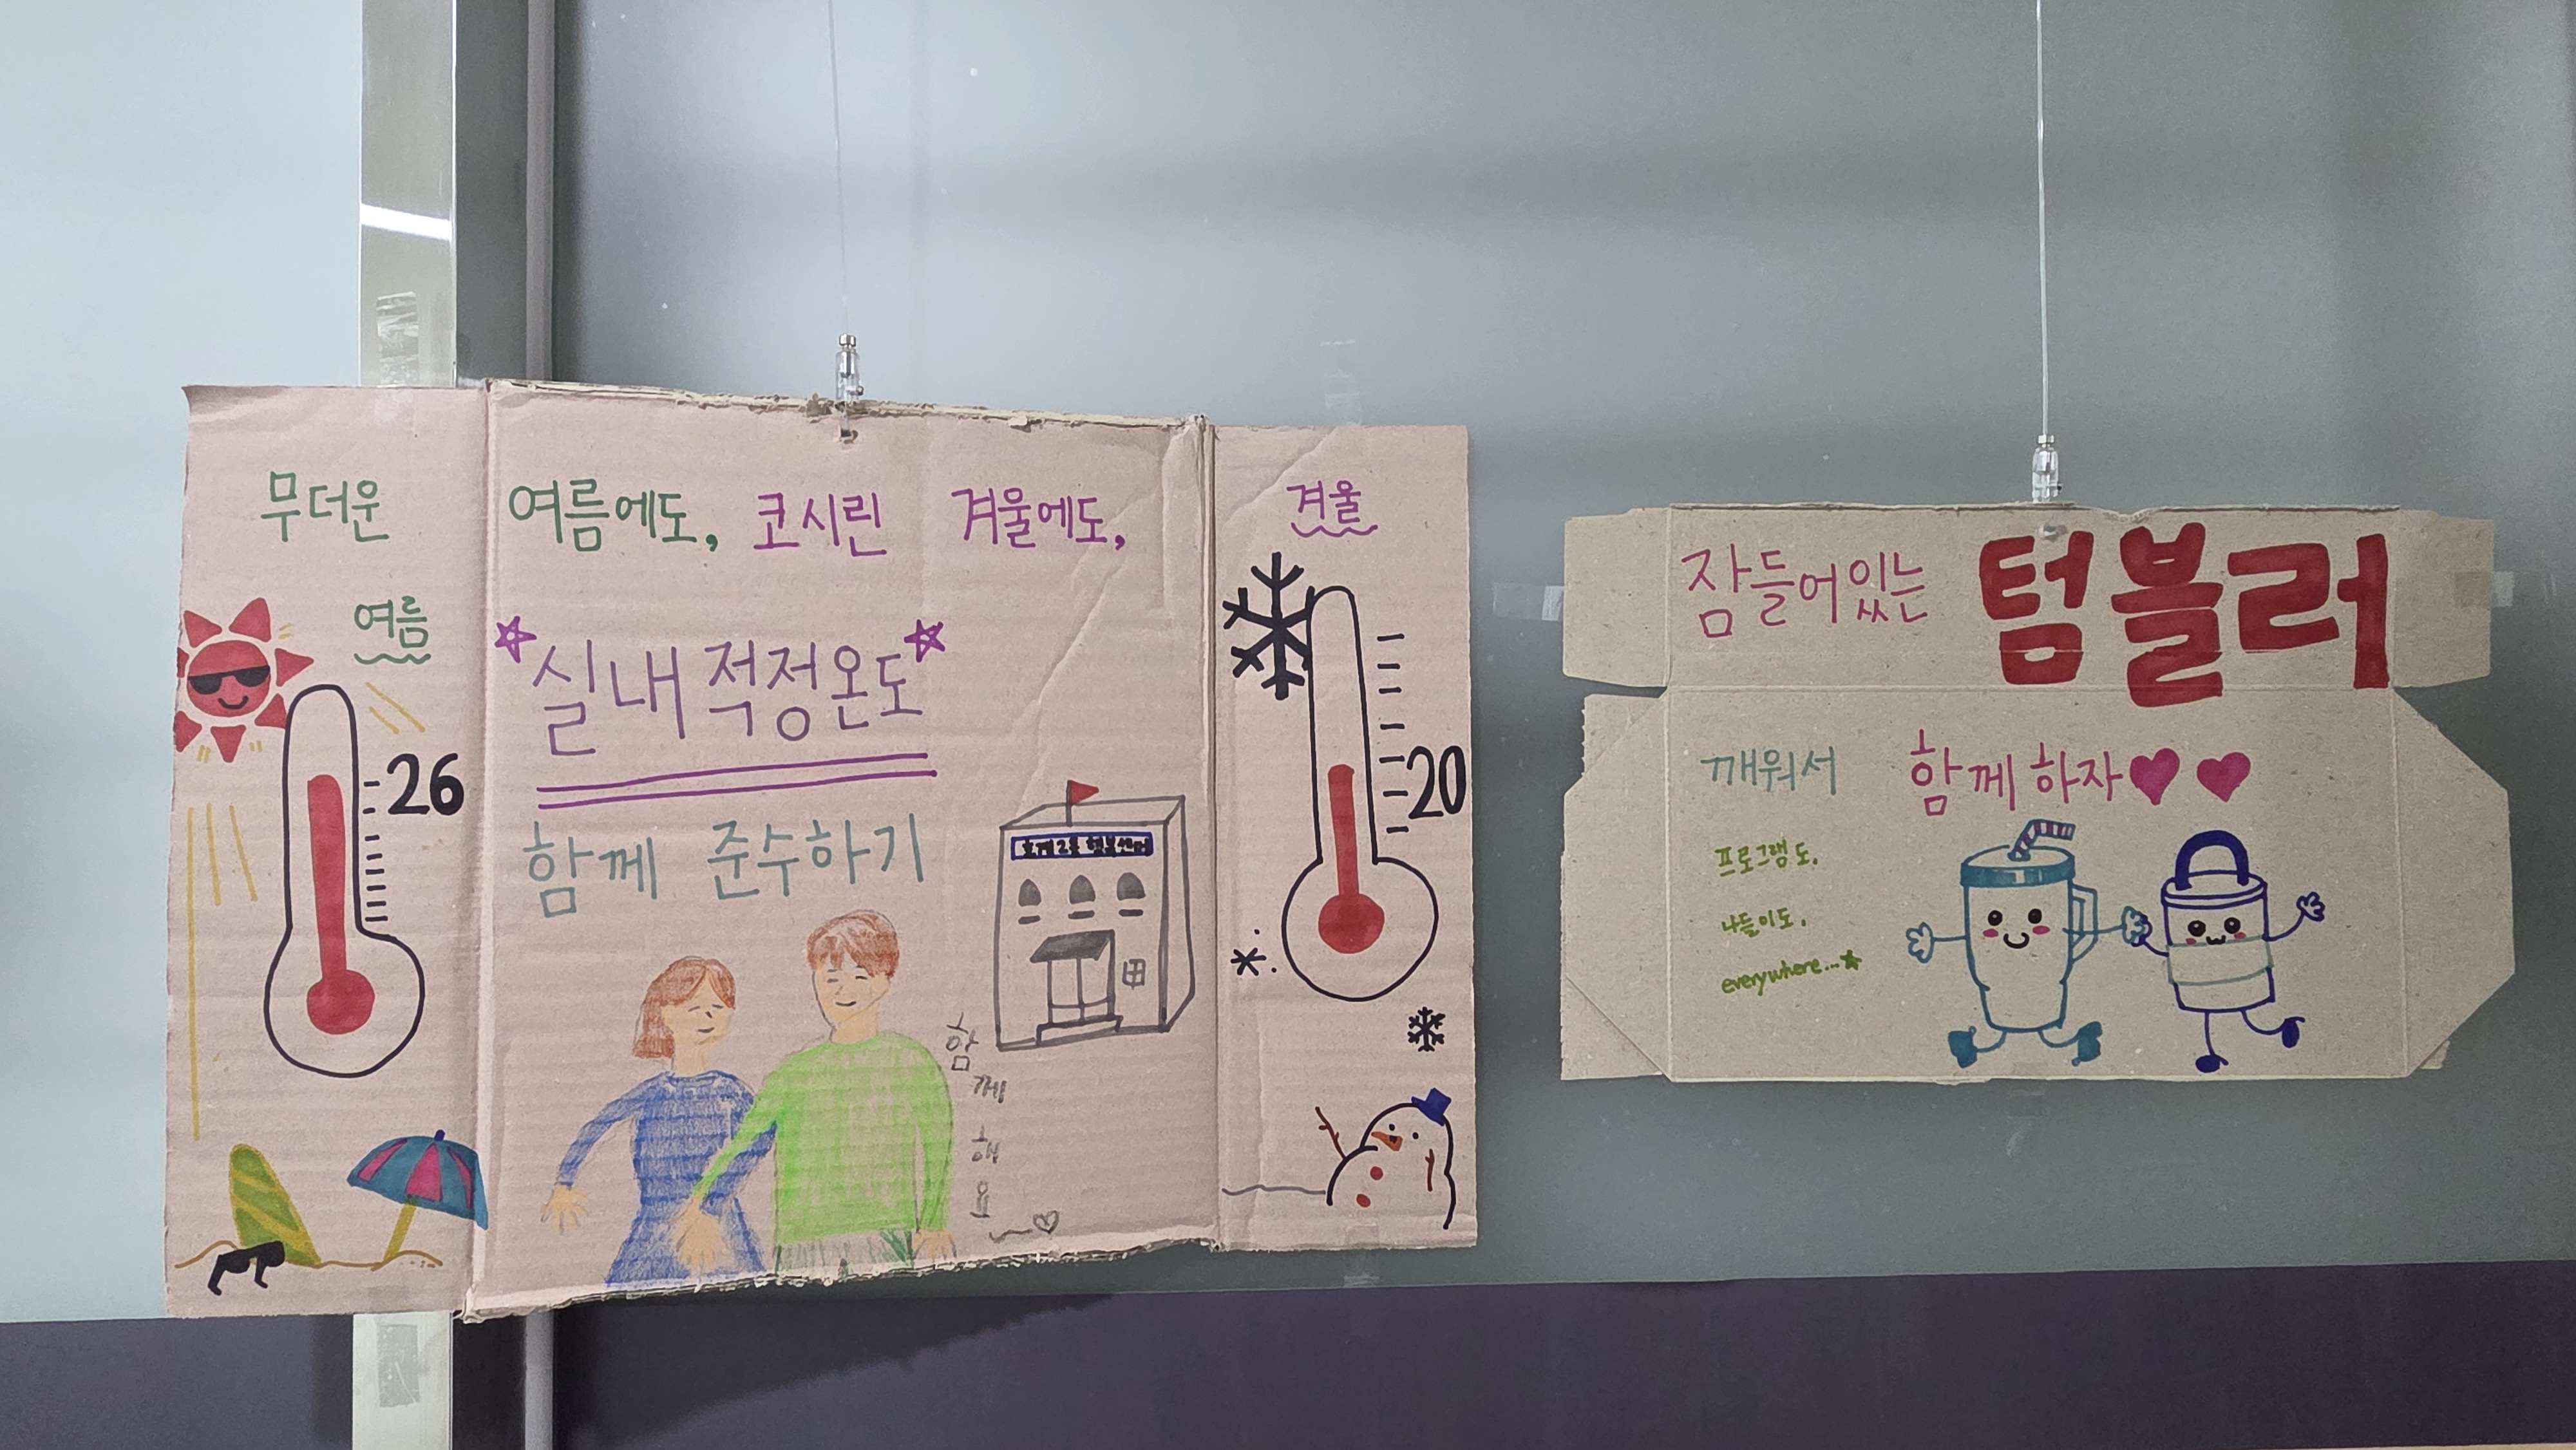 무더운 여름에도, 코시린 겨울에도,
여름
26
*실내 적정온도*
함께 준수하기
호계2동 행복센터
함께해요
겨울
20
잠들어있는 텀블러
깨워서 함께하자
프로그램도,
나들이도,
everywhere...